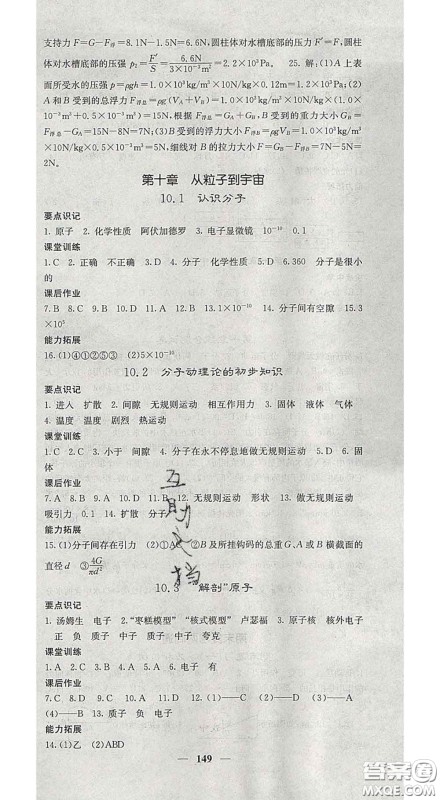 支持力 F=G-F浮=8.1N-1.5N=6.6N,圆柱体对水槽底部的压力 F'=F,圆柱
体对水槽底部的压强 p₂=F'/S=6.6N/3×10⁻³m²=2.2×10³Pa; 25. 解:(1)A 上表
面所受水的压强 p=ρgh=1.0×10³kg/m³×10N/kg×0.12m=1.2×10³Pa; (2)
A 和 B 受到的总浮力 F浮总=ρg(VA+VB)=1.0×10³kg/m³×10N/kg×(1.0×10⁻³m³+
0.5×10⁻³m³)=15N,根据 F浮总=GA+GB,B 受到的重力大小 GB=
F浮总-GA=15N-8N=7N; (3)B 受到的浮力大小 FB=ρgVB=1.0×10³kg/m³
×10N/kg×0.5×10⁻³m³=5N,细线对 B 的拉力大小 F=GB-FB=7N-5N=
2N。
第十章 从粒子到宇宙
10.1 认识分子
要点识记
1. 原子 2. 化学性质 阿伏加德罗 3. 电子显微镜 10⁻¹⁰ 0.1
课堂训练
1. C 2. 正确 不正确 3. C 4. 分子 化学性质 5. D 6. 360 分子是很小
的
课后作业
7. B 8. C 9. B 10. D 11. A 12. D 13. 1×10⁻¹⁰ 14. 分子间有空隙 15. 3
×10⁵
能力拓展
16. (1)④①②⑤③ (2)5×10⁻¹⁰
10.2 分子动理论的初步知识
要点识记
1. 进入 扩散 2. 间隙 无规则运动 相互作用力 3. 固体 液体 气体
4. 温度 温度 剧烈 热运动
课堂训练
1. C 2. C 3. 小于 间隙 4. 分子在永不停息地做无规则运动 5. D 6. 固
体
课后作业
7. A 8. B 9. C 10. D 11. B 12. 无规则运动 形状 13. 做无规则运动
吸引力 0.1 14. 扩散 分子
能力拓展
15. (1)分子间存在引力 (2)①A C ②B及所挂钩码的总重G A或B横截面的
直径d ③4G/πd²
10.3 “解剖”原子
要点识记
1. 汤姆生 电子 2. “枣糕模型” “核式模型” 卢瑟福 3. 原子核 核外电子
正 负 质子 中子 质子 中子 夸克
课堂训练
1. A 2. D 3. B 4. B 5. A 6. 电子 有
课后作业
7. C 8. C 9. D 10. D 11. B 12. (1)——C (2)——D (3)——A
(4)——B 13. 质子 负 电子
能力拓展
14. (1)乙 (2)ABD
149
互助文档
答案圈
MXQE.COM